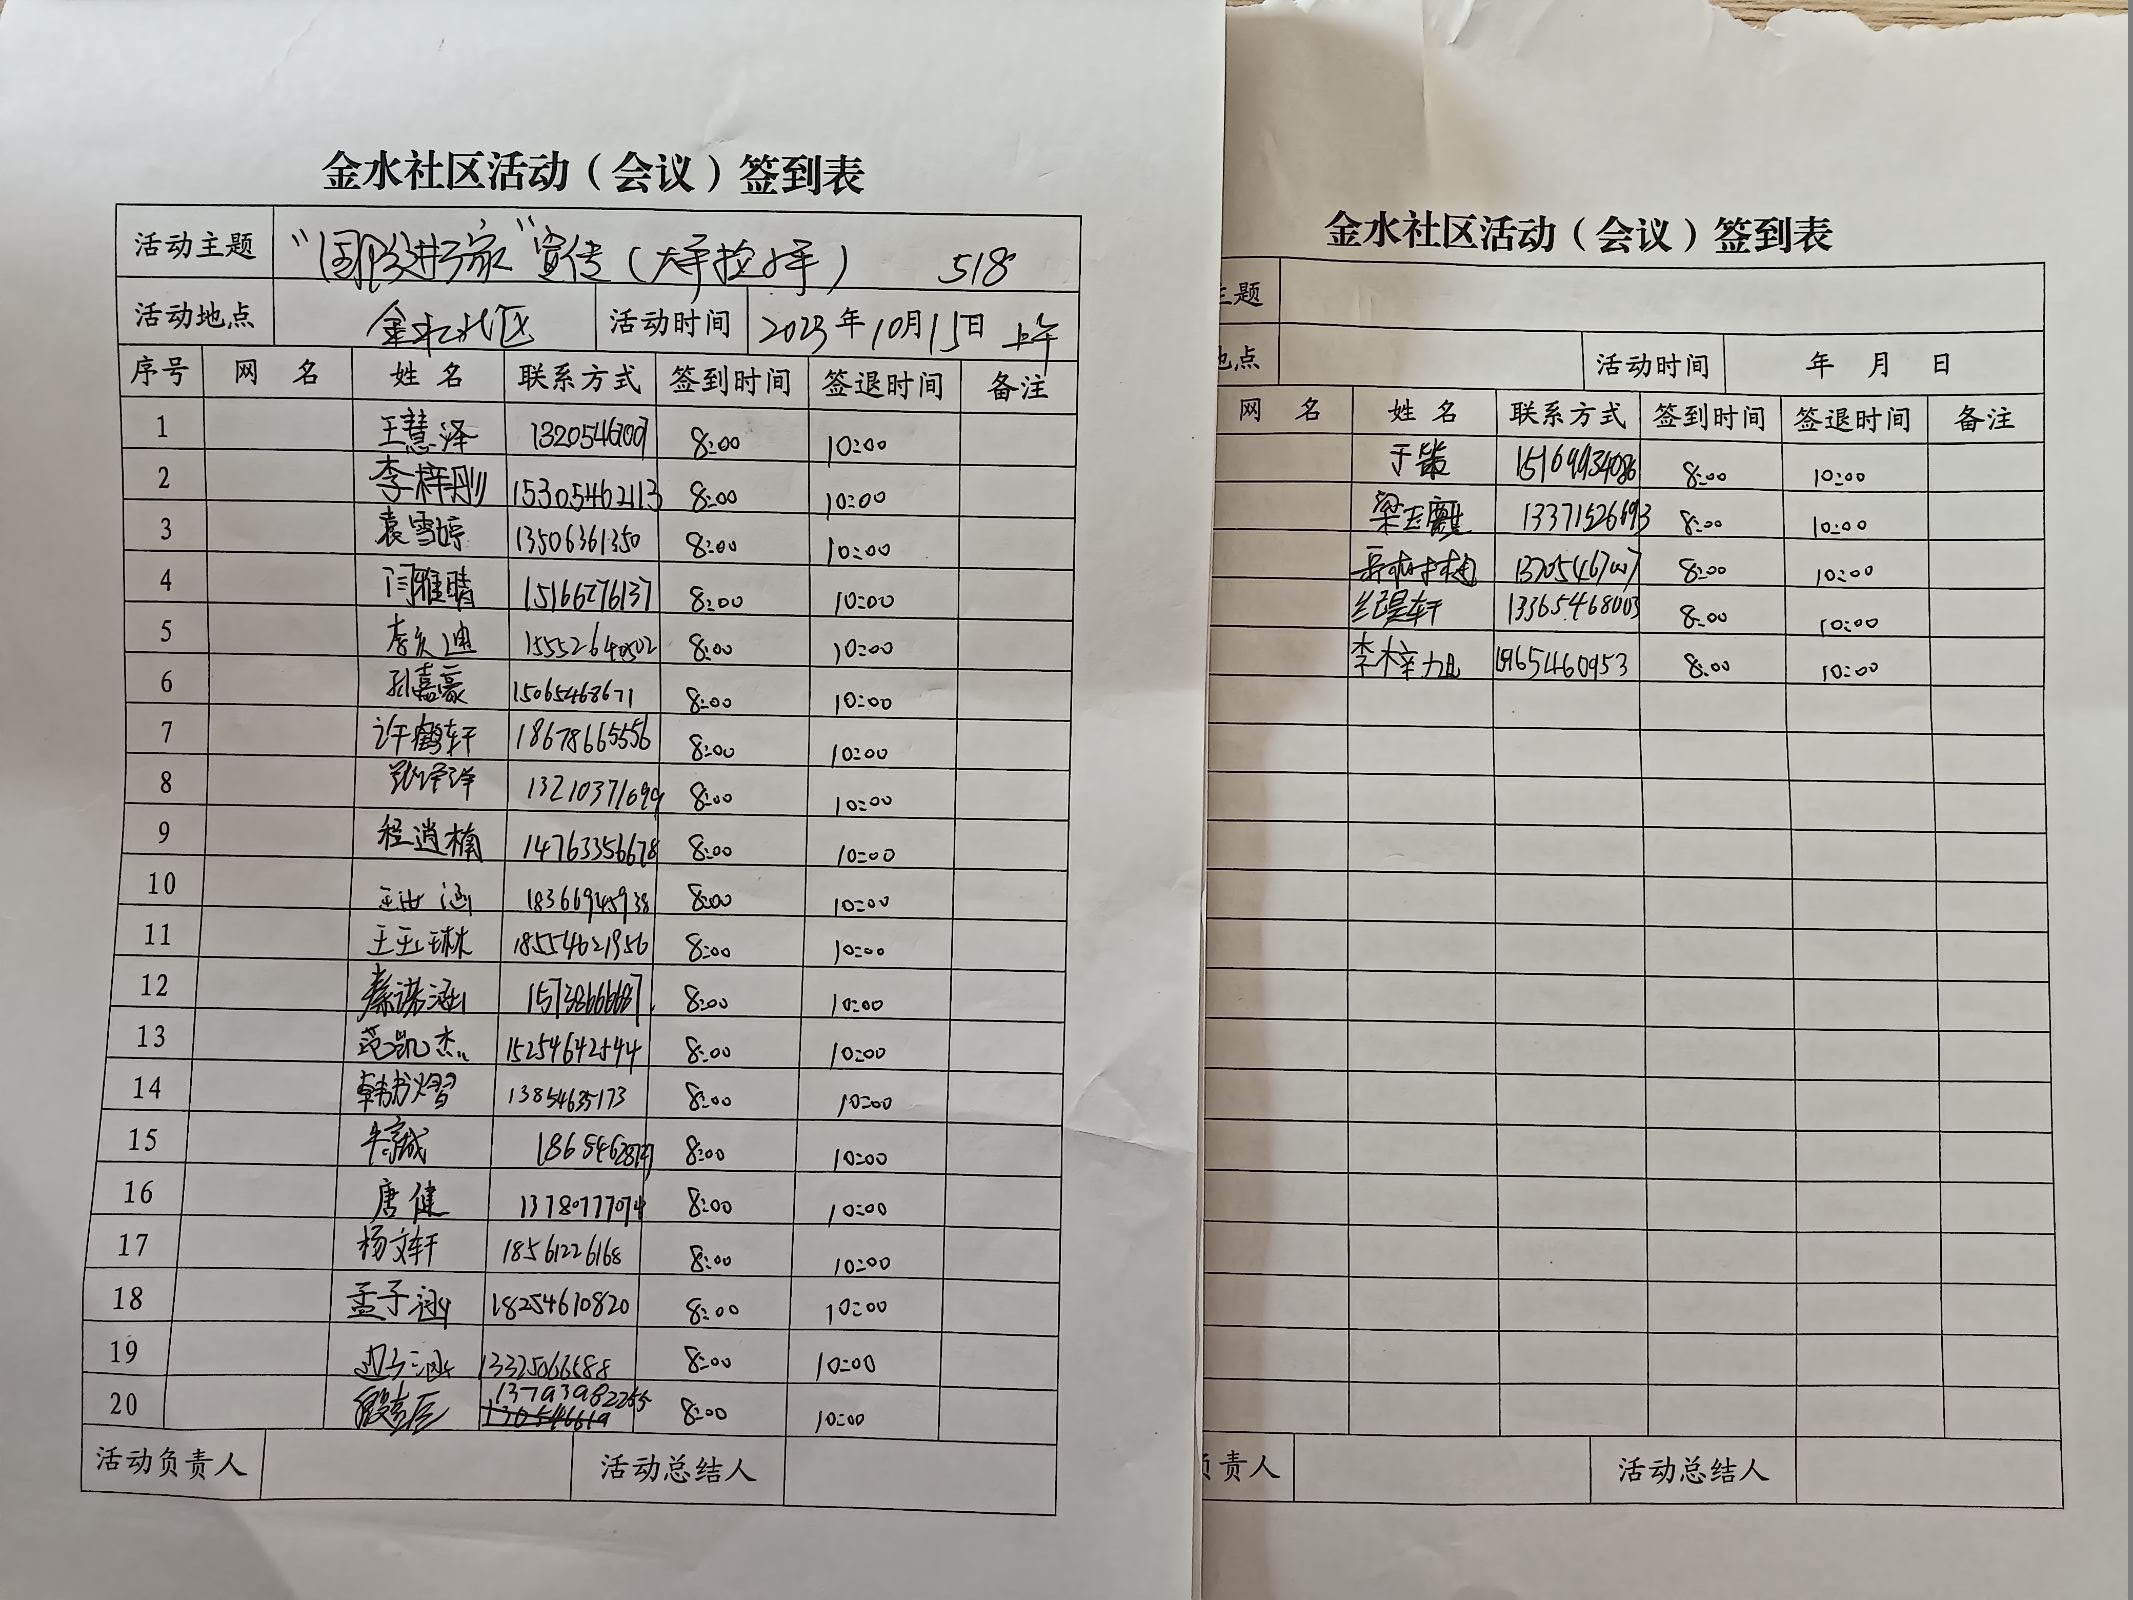 金水社区活动（会议）签到表
活动主题 “国防进万家”宣传（大手拉小手） 518
活动地点 金水社区 活动时间 2023年10月15日 上午
序号 网 名 姓 名 联系方式 签到时间 签退时间 备注
1 王慧泽 8:00 10:00
2 李梓刚 15305462113 8:00 10:00
3 袁雪婷 13506361350 8:00 10:00
4 闫雅晴 15166276137 8:00 10:00
5 8:00 10:00
6 孙嘉豪 15065468671 8:00 10:00
7 许鹤轩 18678665556 8:00 10:00
8 13210371699 8:00 10:00
9 程逍楠 14763356678 8:00 10:00
10 18366945938 8:00 10:00
11 18554621956 8:00 10:00
12 秦诺涵 8:00 10:00
13 范凯杰 15254642544 8:00 10:00
14 韩书熠 13854635173 8:00 10:00
15 8:00 10:00
16 唐健 13780777074 8:00 10:00
17 杨文轩 18561226168 8:00 10:00
18 孟子涵 18254610820 8:00 10:00
19 8:00 10:00
20 13793982255 8:00 10:00
活动负责人 活动总结人
金水社区活动（会议）签到表
主题
地点 活动时间 年 月 日
网 名 姓 名 联系方式 签到时间 签退时间 备注
15169934086 8:00 10:00
8:00 10:00
8:00 10:00
纪昊轩 13365468003 8:00 10:00
李梓旭 8:00 10:00
负责人 活动总结人